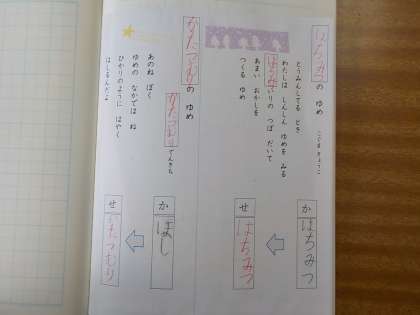 はちみつ の ゆめ
こぐまきょうこ
とうみんしてる とき
わたしは しんしん ゆめを みる
はちみついりの つぼ だいて
あまい おかしを
つくる ゆめ
か はちみつ
せ はちみつ
かたつむり の ゆめ
かたつむり でんきち
あのね ぼく
ゆめの なかでは ね
ひかりのように はやく
はしるんだよ
か ほし
せ かたつむり